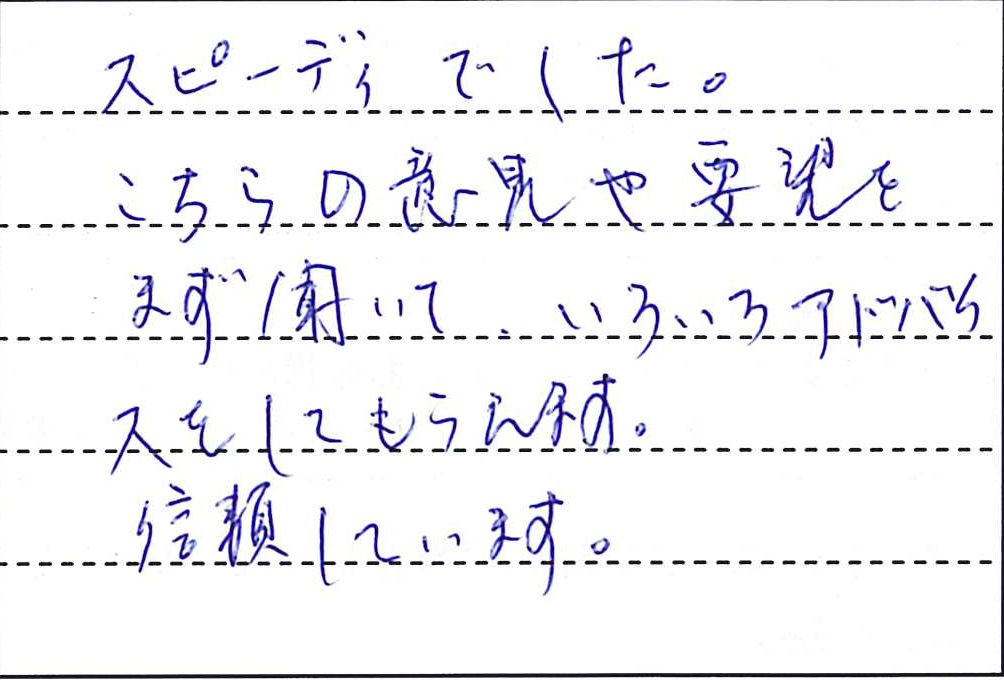 スピーディでした。
こちらの意見や要望を
まず聞いて、いろいろアドバイ
スをしてもらえます。
信頼しています。